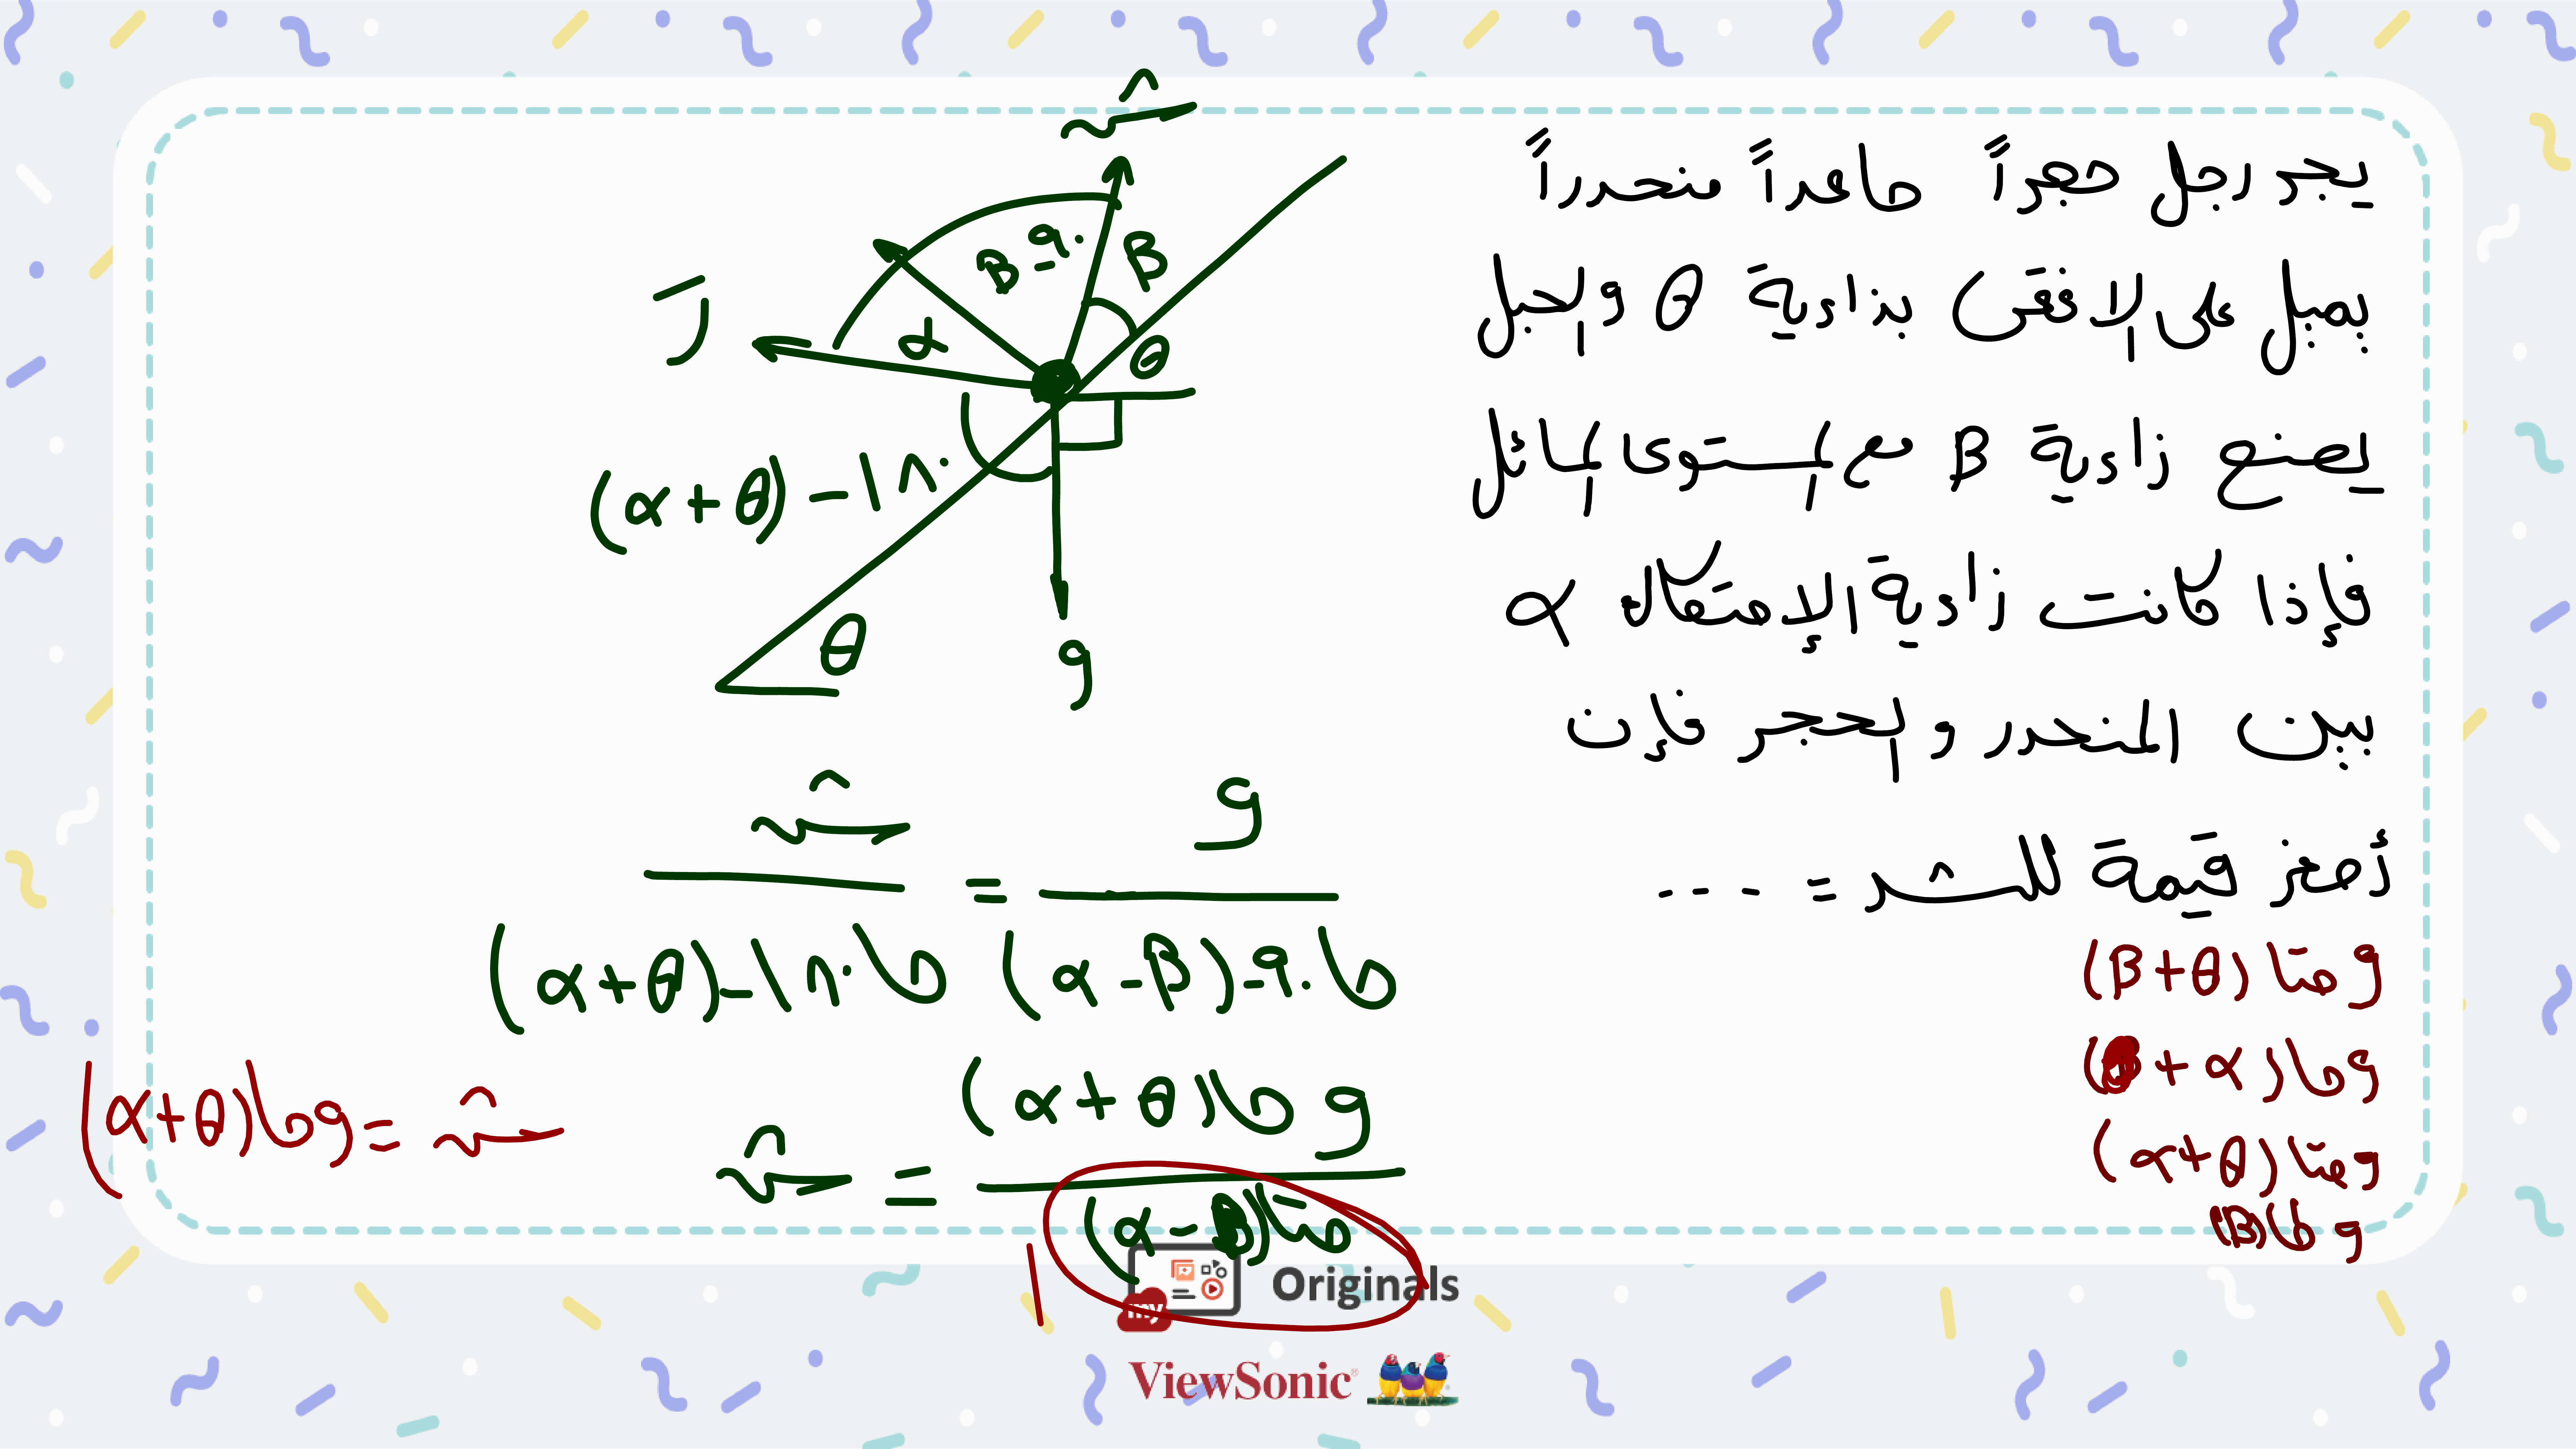 يجر رجل حجراً صاعداً منحدراً
يميل على الافقى بزاوية θ والحبل
يصنع زاوية β مع المستوى المائل
فإذا كانت زاوية الإحتكاك α
بين المنحدر والحجر فإن
أصغر قيمة للشد = ...
و حتا (β+θ)
و حا (θ + α)
و حتا (α+θ)
و حا (β)
ش
β
٩٠ - β
α
θ
ر
١٨٠ - (α+θ)
و
θ
ش / حا ١٨٠-(α+θ) = و / حا ٩٠-(α-β)
ش = و حا (α+θ) / حتا (α-β)
١
ش = و حا (α+θ)
my Originals
ViewSonic